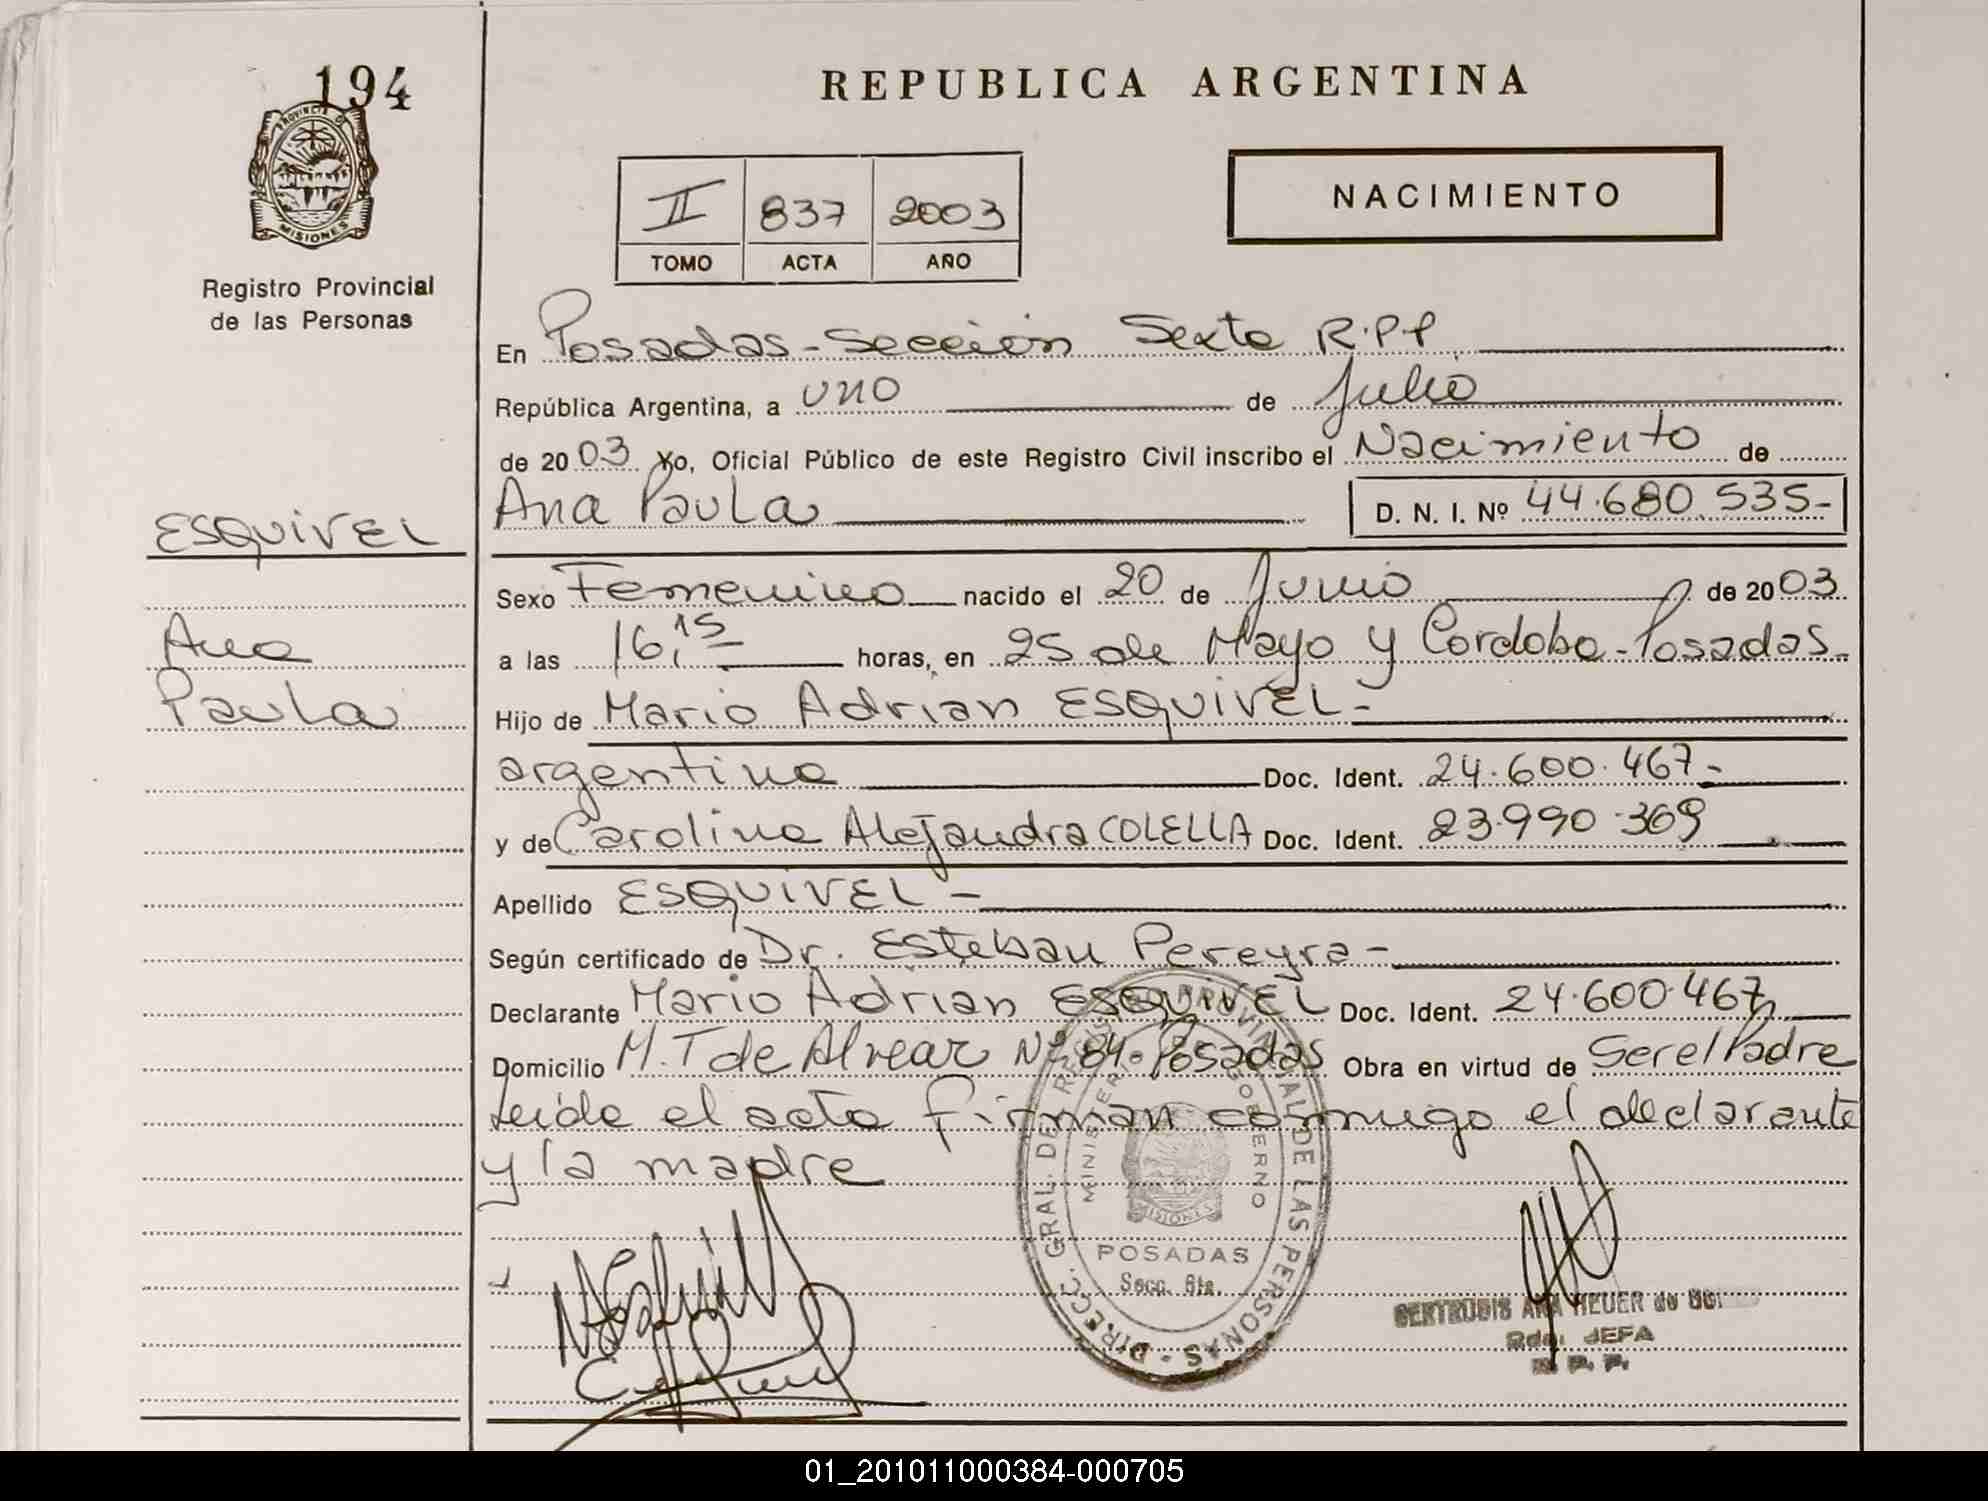 194
REPUBLICA ARGENTINA
PROVINCIA DE
MISIONES
Registro Provincial
de las Personas
II 837 2003
TOMO ACTA AÑO
NACIMIENTO
En Posadas-Sección Sexta R.P.P
República Argentina, a uno de Julio
de 2003 Yo, Oficial Público de este Registro Civil inscribo el Nacimiento de
Ana Paula D. N. I. Nº 44.680.535-
ESQUIVEL
Ana
Paula
Sexo Femenino nacido el 20 de Junio de 2003
a las 16,15 horas, en 25 de Mayo y Cordoba-Posadas-
Hijo de Mario Adrian ESQUIVEL-
argentino Doc. Ident. 24.600.467-
y de Carolina Alejandra COLELLA Doc. Ident. 23.990.369
Apellido ESQUIVEL-
Según certificado de Dr. Esteban Pereyra-
Declarante Mario Adrian ESQUIVEL Doc. Ident. 24.600.467
Domicilio M.T de Alvear Nº 84-Posadas Obra en virtud de Ser el Padre
Leida el acta firman conmigo el declarante
y la madre
DIRECC. GRAL. DEL REGISTRO PROVINCIAL DE LAS PERSONAS
MINISTERIO DE GOBIERNO
MISIONES
POSADAS
Secc. 6ta.
GERTRUDIS ANA HEUER de
JEFA
R. P. P.
01_201011000384-000705